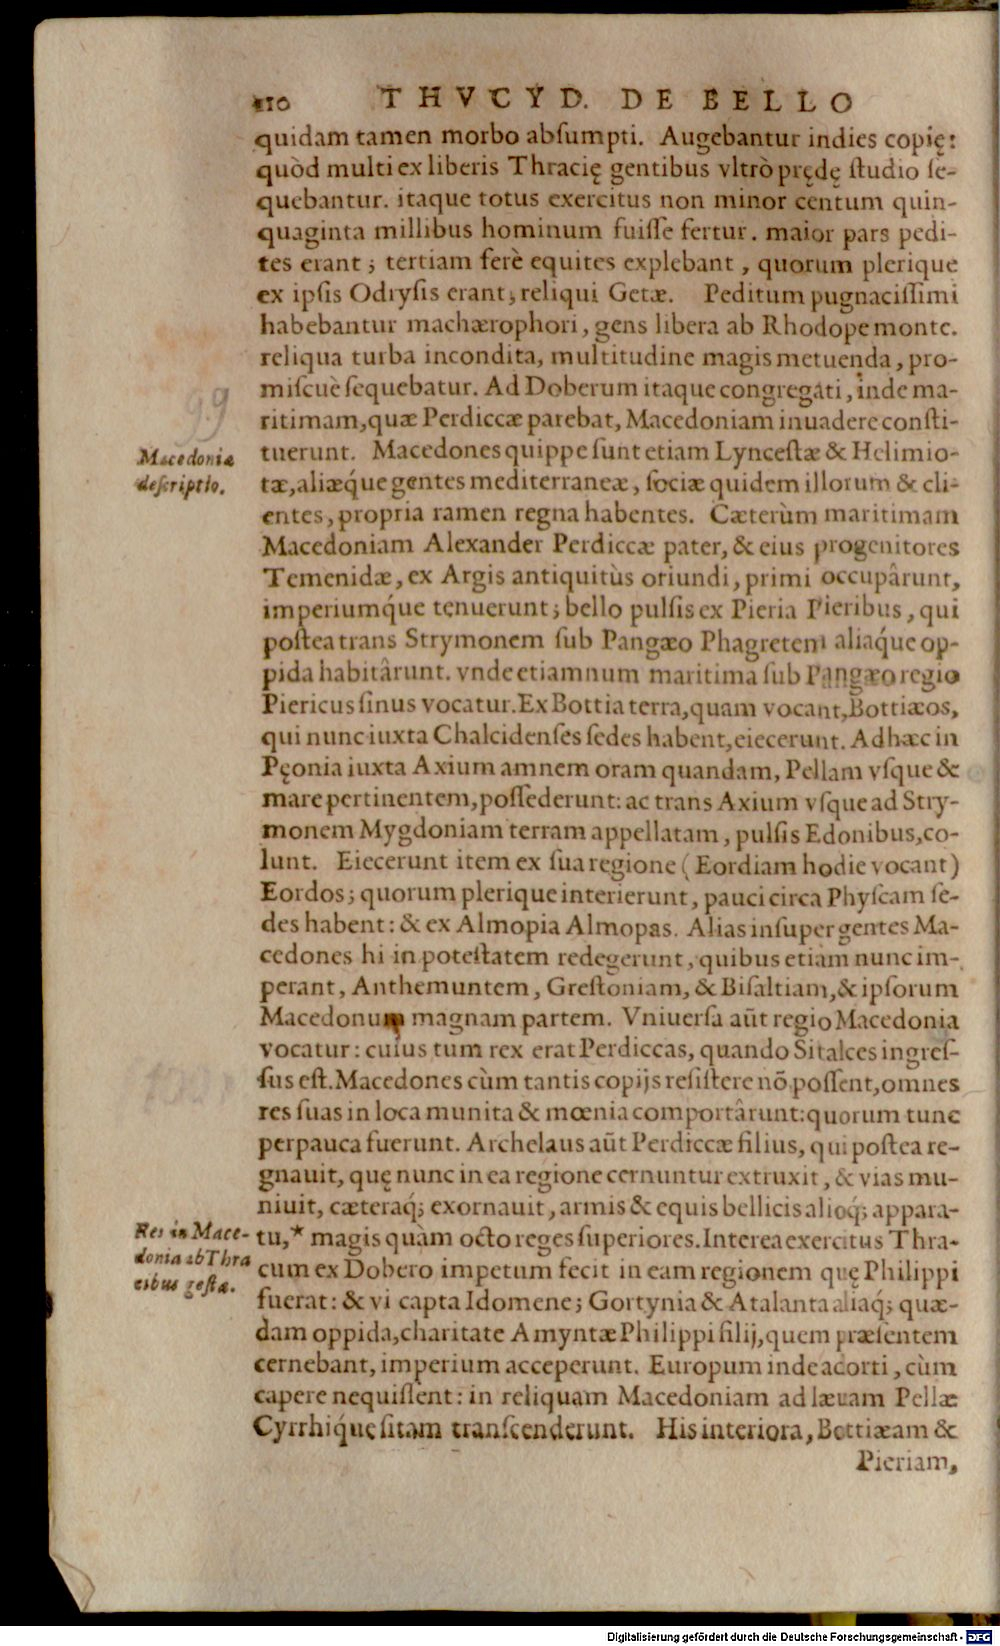 110 THVCYD. DE BELLO
quidam tamen morbo absumpti. Augebantur indies copię:
quòd multi ex liberis Thracię gentibus vltrò prędę studio se-
quebantur. itaque totus exercitus non minor centum quin-
quaginta millibus hominum fuisse fertur. maior pars pedi-
tes erant; tertiam ferè equites explebant, quorum plerique
ex ipsis Odrysis erant, reliqui Getæ. Peditum pugnacissimi
habebantur machærophori, gens libera ab Rhodope monte.
reliqua turba incondita, multitudine magis metuenda, pro-
miscuè sequebatur. Ad Doberum itaque congregati, inde ma-
ritimam, quæ Perdiccæ parebat, Macedoniam inuadere consti-
Macedoniæ
descriptio.
tuerunt. Macedones quippe sunt etiam Lyncestæ & Helimio-
tæ, aliæq́ue gentes mediterraneæ, sociæ quidem illorum & cli-
entes, propria ramen regna habentes. Cæterùm maritimam
Macedoniam Alexander Perdiccæ pater, & eius progenitores
Temenidæ, ex Argis antiquitùs oriundi, primi occupârunt,
imperiumq́ue tenuerunt; bello pulsis ex Pieria Pieribus, qui
postea trans Strymonem sub Pangæo Phagretem aliaq́ue op-
pida habitârunt. vnde etiamnum maritima sub Pangæo regio
Piericus sinus vocatur. Ex Bottia terra, quam vocant, Bottiæos,
qui nunc iuxta Chalcidenses sedes habent, eiecerunt. Ad hæc in
Pęonia iuxta Axium amnem oram quandam, Pellam vsque &
mare pertinentem, possederunt: ac trans Axium vsque ad Stry-
monem Mygdoniam terram appellatam, pulsis Edonibus, co-
lunt. Eiecerunt item ex sua regione (Eordiam hodie vocant)
Eordos; quorum plerique interierunt, pauci circa Physcam se-
des habent: & ex Almopia Almopas. Alias insuper gentes Ma-
cedones hi in potestatem redegerunt, quibus etiam nunc im-
perant, Anthemuntem, Grestoniam, & Bisaltiam, & ipsorum
Macedonum magnam partem. Vniuersa aūt regio Macedonia
vocatur: cuius tum rex erat Perdiccas, quando Sitalces ingres-
sus est. Macedones cùm tantis copijs resistere nō possent, omnes
res suas in loca munita & mœnia comportârunt: quorum tunc
perpauca fuerunt. Archelaus aūt Perdiccæ filius, qui postea re-
gnauit, quę nunc in ea regione cernuntur extruxit, & vias mu-
niuit, cæteraq́; exornauit, armis & equis bellicis alioq́; appara-
Res in Mace-
donia ab Thra
cibus gestæ.
tu,* magis quàm octo reges superiores. Interea exercitus Thra-
cum ex Dobero impetum fecit in eam regionem quę Philippi
fuerat: & vi capta Idomene; Gortynia & Atalanta aliaq́; quæ-
dam oppida, charitate Amyntæ Philippi filij, quem præsentem
cernebant, imperium acceperunt. Europum inde adorti, cùm
capere nequissent: in reliquam Macedoniam ad læuam Pellæ
Cyrrhiq́ue sitam transcenderunt. His interiora, Bottiæam &
Pieriam,
99
Digitalisierung gefördert durch die Deutsche Forschungsgemeinschaft - DFG